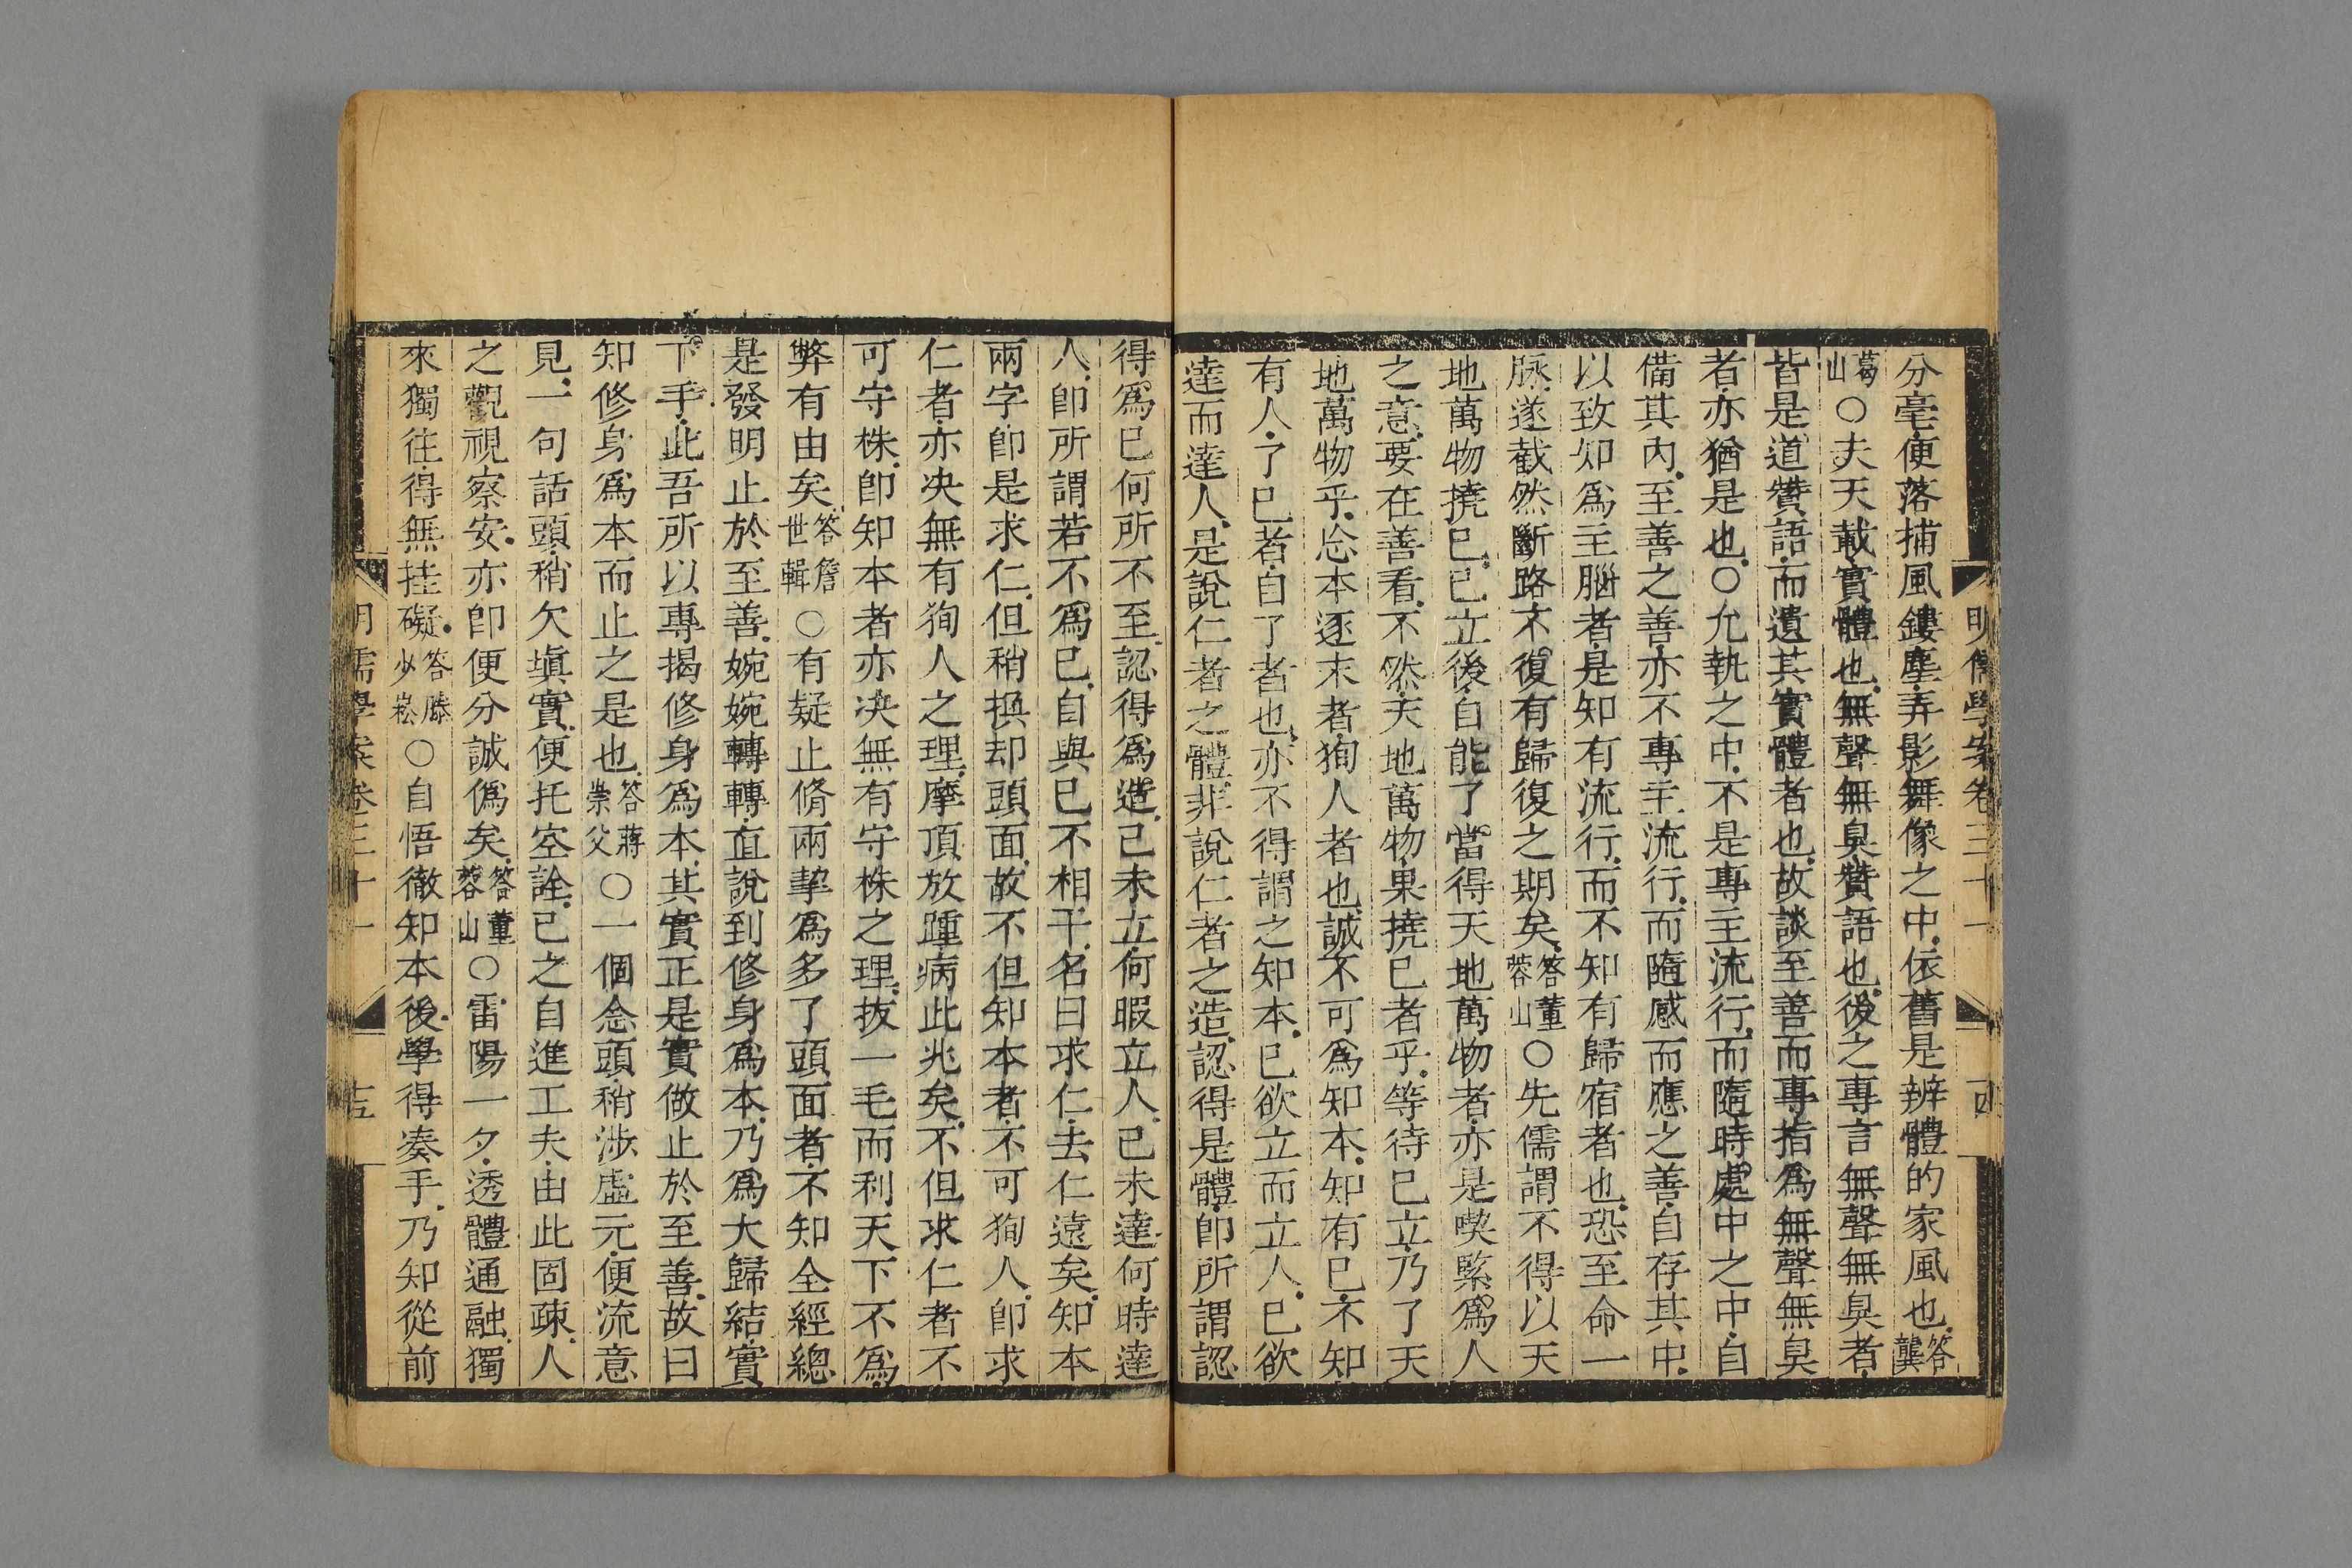 明儒學案卷三十一
分毫便落捕風鏤塵弄影舞像之中依舊是辨體的家風也答龔
葛山○夫天載實體也無聲無臭贊語也後之專言無聲無臭者
皆是道贊語而遺其實體者也故談至善而專指爲無聲無臭
者亦猶是也○允執之中不是專主流行而隨時處中之中自
備其內至善之善亦不專主流行而隨感而應之善自存其中
以致知爲主腦者是知有流行而不知有歸宿者也恐至命一
脉遂截然斷路不復有歸復之期矣答董蓉山○先儒謂不得以天
地萬物撓已已立後自能了當得天地萬物者亦是喫緊爲人
之意要在善看不然天地萬物果撓已者乎等待已立乃了天
地萬物乎忩本逐末者狥人者也誠不可爲知本知有已不知
有人了已者自了者也亦不得謂之知本已欲立而立人已欲
達而達人是說仁者之體非說仁者之造認得是體卽所謂認
得爲已何所不至認得爲造已未立何暇立人已未達何時達
人卽所謂若不爲已自與已不相干名曰求仁去仁遠矣知本
兩字卽是求仁但稍換却頭面故不但知本者不可狥人卽求
仁者亦决無有狥人之理摩頂放踵病此兆矣不但求仁者不
可守株卽知本者亦决無有守株之理拔一毛而利天下不爲
弊有由矣答詹世輯○有疑止脩兩挈爲多了頭面者不知全經總
是發明止於至善婉婉轉轉直說到修身爲本乃爲大歸結實
下手此吾所以專揭修身爲本其實正是實做止於至善故曰
知修身爲本而止之是也答蔣崇父○一個念頭稍涉虛元便流意
見一句話頭稍欠塡實便托空詮已之自進工夫由此固疎人
之觀視察安亦卽便分誠僞矣答董蓉山○雷陽一夕透體通融獨
來獨往得無挂礙答滕少崧○自悟徹知本後學得凑手乃知從前
明儒學案卷三十一